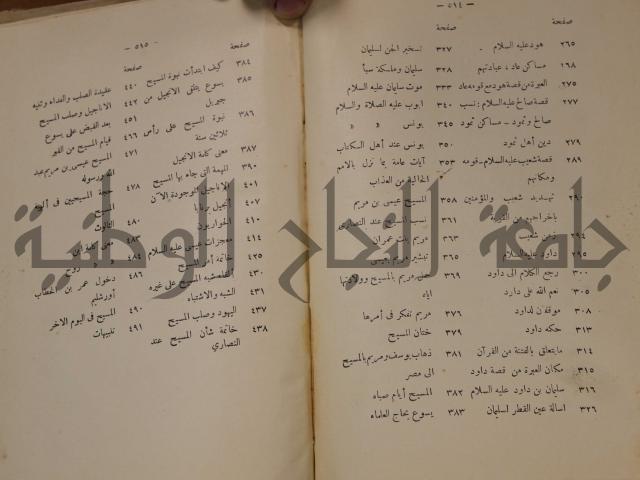 — ٥١٤ —
صفحة
٢٦٥ هود عليه السلام
٢٦٨ مساكن عاد ، عبادتهم
٢٧٥ العبرة من قصة هود مع قومه عاد
٢٧٧ قصة صالح عليه السلام : نسب
صالح وثمود - مساكن ثمود
دين أهل ثمود
٢٨٩ قصة شعيب عليه السلام - قومه
ومكانهم
٢٩٠ تهديد شعيب والمؤمنين
باخراجهم من القرية
٢٩٤ زمن شعيب
٢٩٥ داود عليه السلام
٣٠٠ رجع الكلام الى داود
٣٠٥ نعم الله على داود
٣٠٨ موقعة لداود
٣١٣ حكمة داود
٣١٤ ما يتعلق بالفتنة من القرآن
٣١٥ مكان العبرة من قصة داود
٣١٦ سليمان بن داود عليه السلام
٣٢٦ اسالة عين القطر لسليمان
صفحة
٣٢٧ تسخير الجن لسليمان
٣٢٨ سليمان وملكة سبأ
٣٣٣ موت سليمان عليه السلام
٣٤٠ أيوب عليه الصلاة والسلام
٣٤٥ يونس « «
٣٥٠ يونس عند أهل الكتاب
٣٥٣ آيات عامة بما نزل بالامم
الخالية من العذاب
٣٥٨ المسيح عيسى بن مريم
٣٦١ نسب المسيح عند النصارى
٣٦٣ مريم بنت عمران
٣٦٥ تبشير مريم بعيسى
٣٦٩ حمل مريم بالمسيح وولادتها
اياه
٣٧٦ مريم تفكر فى أمرها
٣٧٩ ختان المسيح
٣٨١ ذهاب يوسف ومريم بالمسيح
الى مصر
٣٨٢ المسيح أيام صباه
٣٨٣ يسوع يحاج العلماء
— ٥١٥ —
صفحة
٣٨٤ كيف ابتدأت نبوة المسيح
٣٨٥ يسوع يتلقى الانجيل من
جبريل
٣٨٦ نبوة المسيح على رأس
ثلاثين سنة
٣٨٧ معنى كلمة الانجيل
٣٩٠ المهمة التى جاء بها المسيح
٤٠١ الاناجيل الموجودة الآن
٤٠٧ انجيل برنابا
٤١٠ الحواريون
٤١٤ معجزات عيسى عليه السلام
٤٢٥ خاتمة أمر المسيح
٤٣٠ القاء شبه المسيح على غيره
٤٣١ الشبه والاشتباه
٤٣٧ اليهود وصلب المسيح
٤٣٨ خاتمة شأن المسيح عند
النصارى
صفحة
٤٤٠ عقيدة الصلب والفداء
٤٤٢ الاناجيل وصلب المسيح
٤٥١ بعد القبض على يسوع
٤٦٦ قيام المسيح من القبر
٤٧١ المسيح عيسى بن مريم عبد
الله ورسوله
٤٧٨ حجة المسيحيين فى
المسيح
الثالوث
٤٨٣ معنى كلمة ابن
٤٨٤ « « روح
٤٨٦ دخول عمر بن الخطاب
أورشليم
٤٩٠ المسيح فى اليوم الآخر
٤٩١ تنبيهات
جامعة النجاح الوطنية